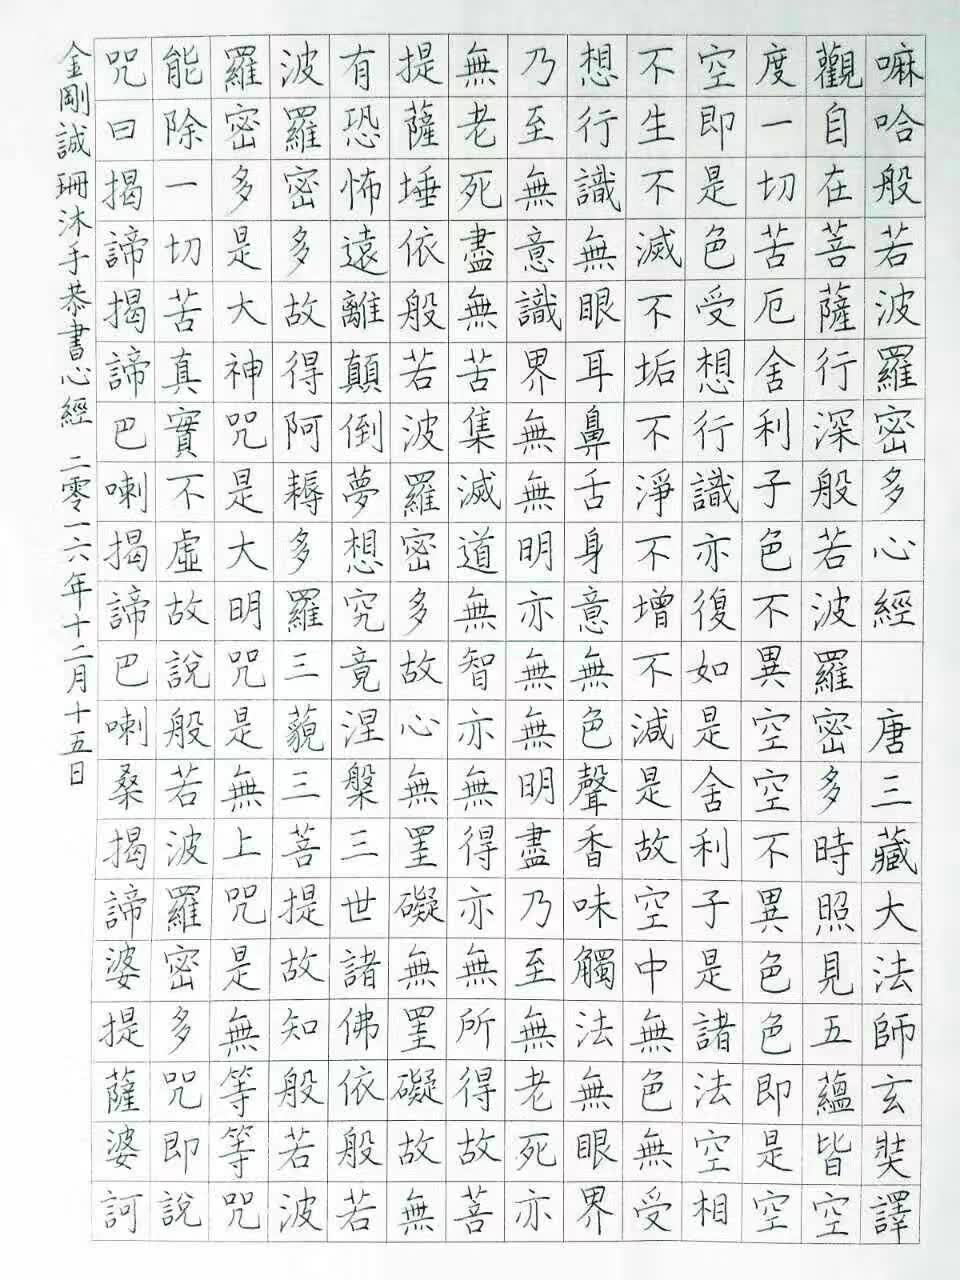 嘛哈般若波羅密多心經　唐三藏大法師玄奘譯
觀自在菩薩行深般若波羅密多時照見五蘊皆空
度一切苦厄舍利子色不異空空不異色色即是空
空即是色受想行識亦復如是舍利子是諸法空相
不生不滅不垢不淨不增不減是故空中無色無受
想行識無眼耳鼻舌身意無色聲香味觸法無眼界
乃至無意識界無無明亦無無明盡乃至無老死亦
無老死盡無苦集滅道無智亦無得亦無所得故菩
提薩埵依般若波羅密多故心無罣礙無罣礙故無
有恐怖遠離顛倒夢想究竟涅槃三世諸佛依般若
波羅密多故得阿耨多羅三藐三菩提故知般若波
羅密多是大神咒是大明咒是無上咒是無等等咒
能除一切苦真實不虛故說般若波羅密多咒即說
咒曰揭諦揭諦巴喇揭諦巴喇桑揭諦婆提薩婆訶
金剛誠珊沐手恭書心經 二零一六年十二月十五日